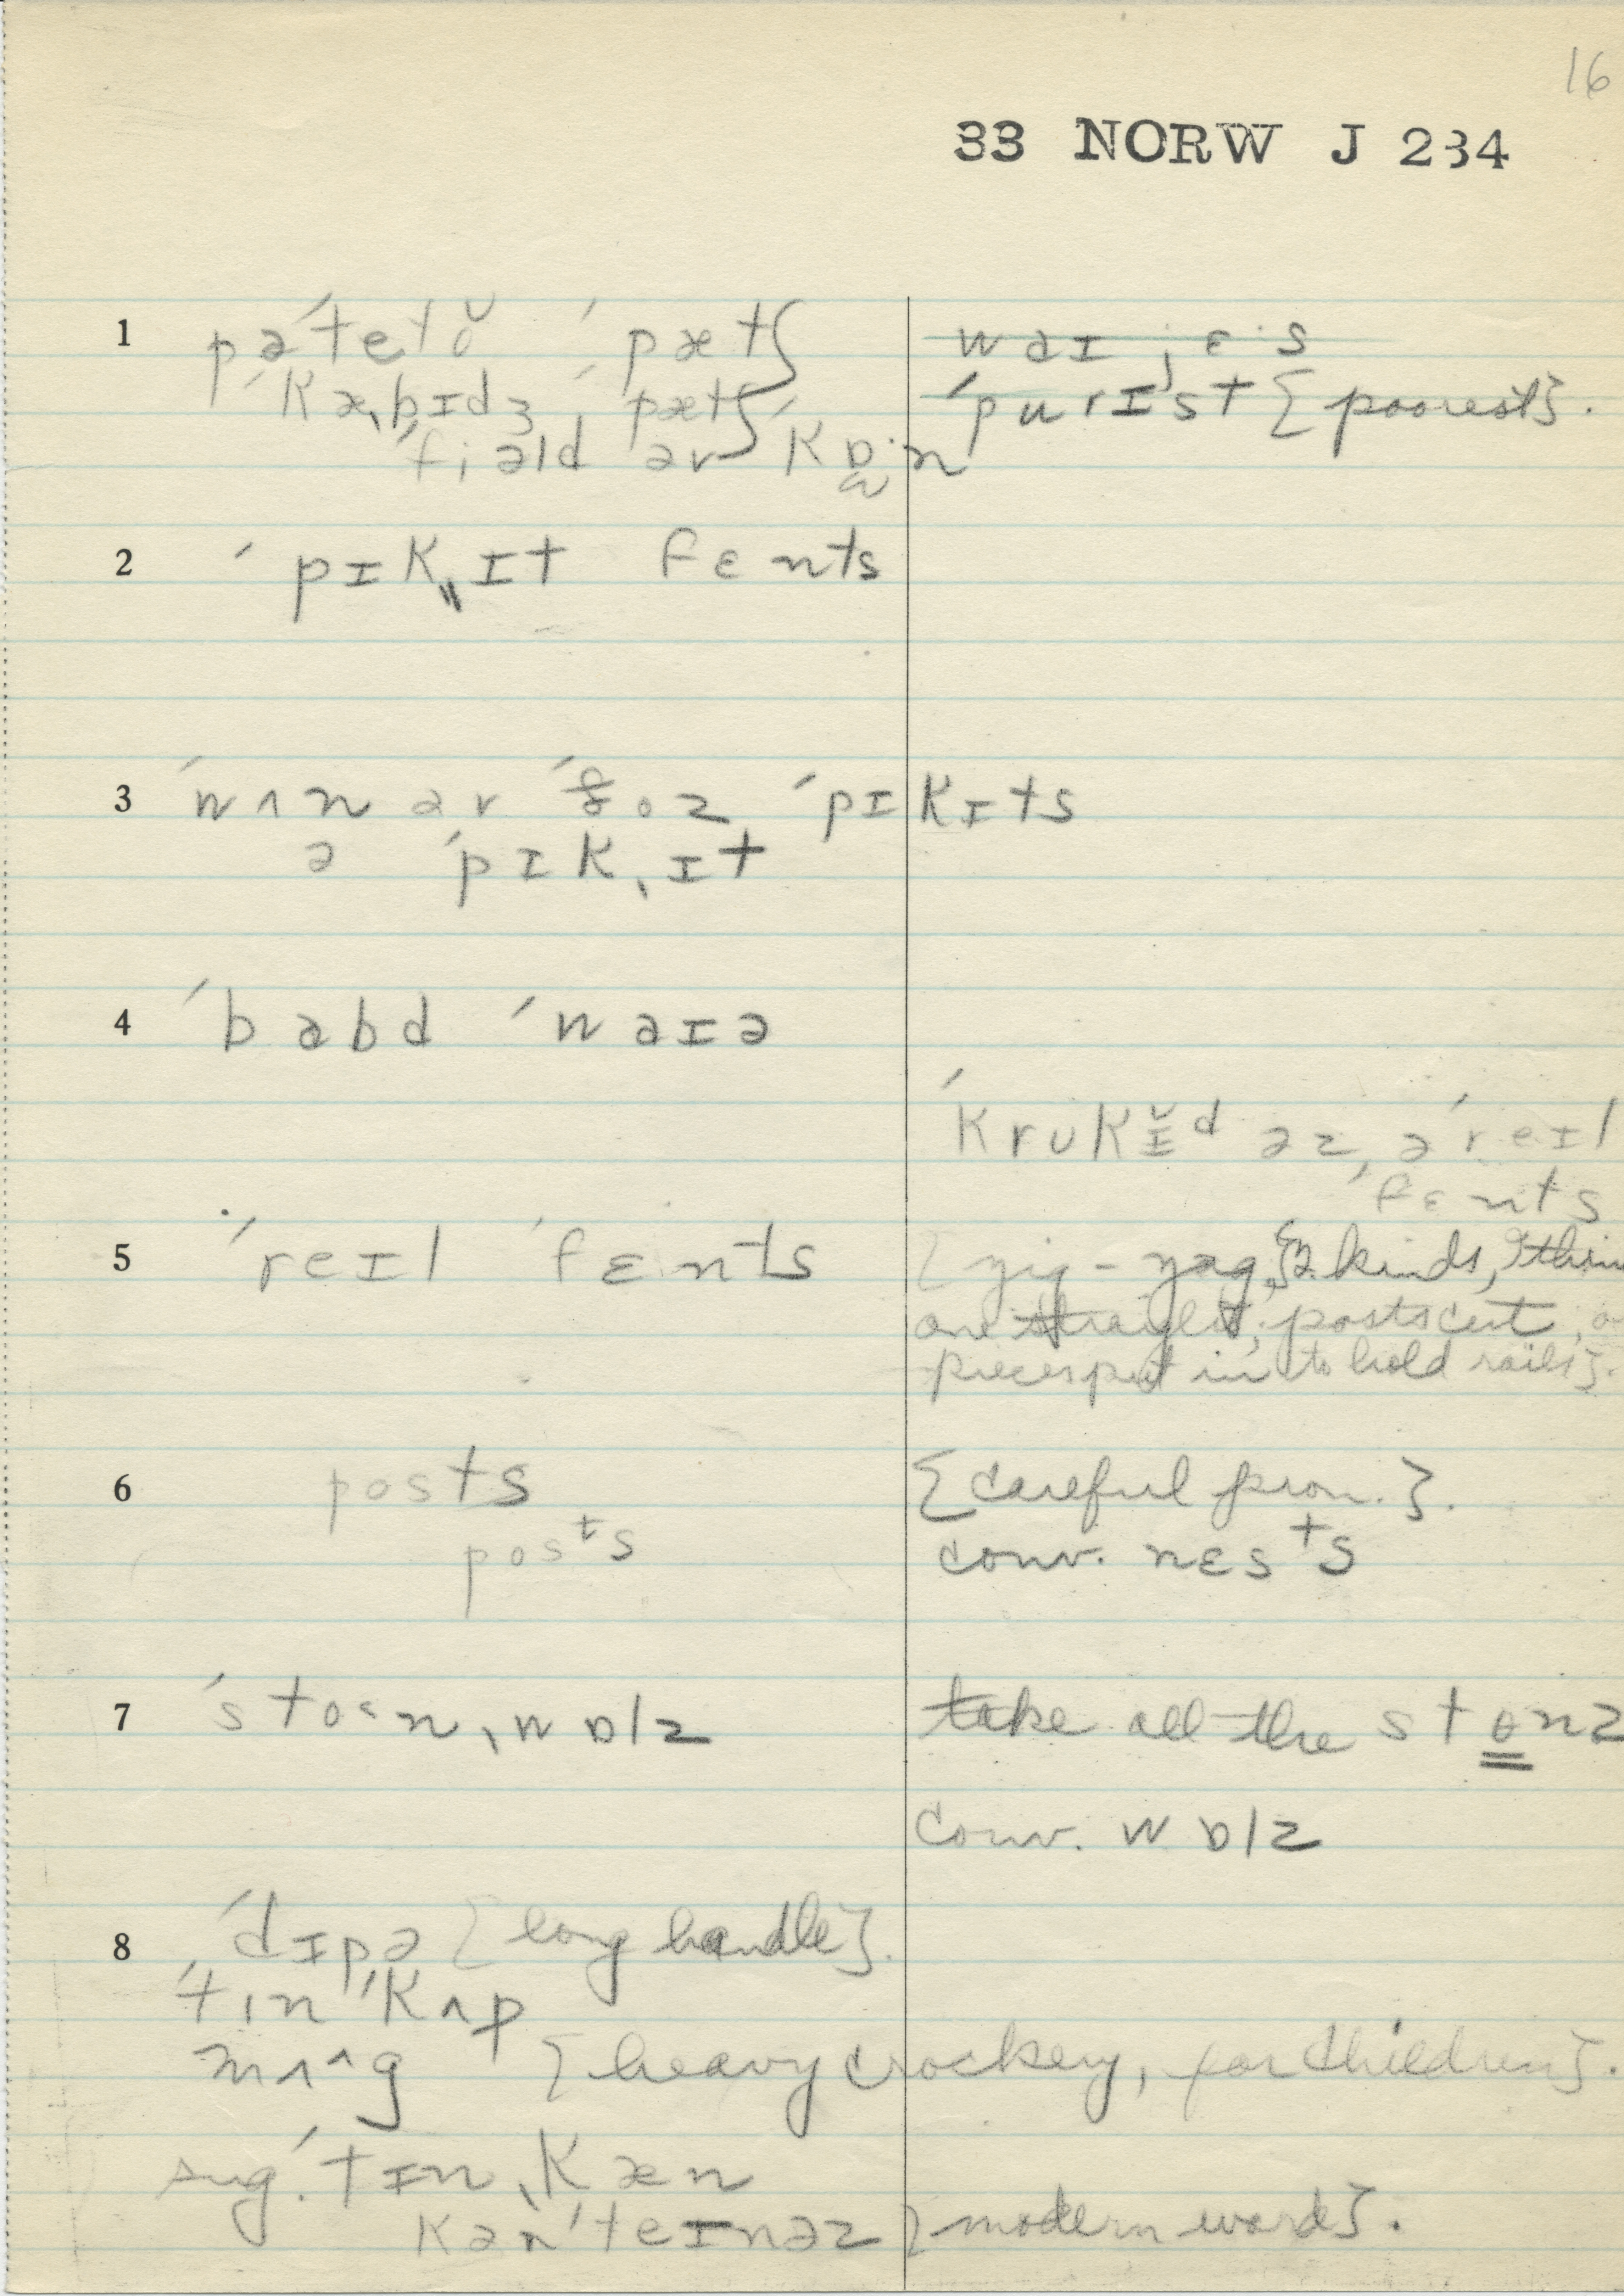 16
33 NORW J 234
1 pəˈtetŏ ˈpæt} waɪˌɛˑs
ˈkæˌbɪdʒ ˌpæt} ˈpurɪst {poorest}.
ˈfiəld əv ˈkɒˑn
2 ˈpɪkˌˌɪt fɛnts
3 ˈwʌn əv ˈðoz ˈpɪkɪts
ə ˈpɪkˌɪt
4 ˈbabd ˈwaɪə
ˈkrʊkɪ̆d əz ə ˈreɪl
ˈfɛnts
5 ˈreɪl ˈfɛnts {zig-zag, 2 kinds,
one straight, posts cut,
pieces put in to hold rails}.
6 posts {careful pron.}.
posᵗs conv. nɛsᵗs
7 ˈstoˑnˌwɒlz take all the stɵnz
conv. wɒlz
8 ˈdɪpə {long handle}.
ˈtɪn ˈkʌp
mʌ^g {heavy crockery, for children}.
sug. ˈtɪnˌkæn
kənˈteɪnəz {modern word}.